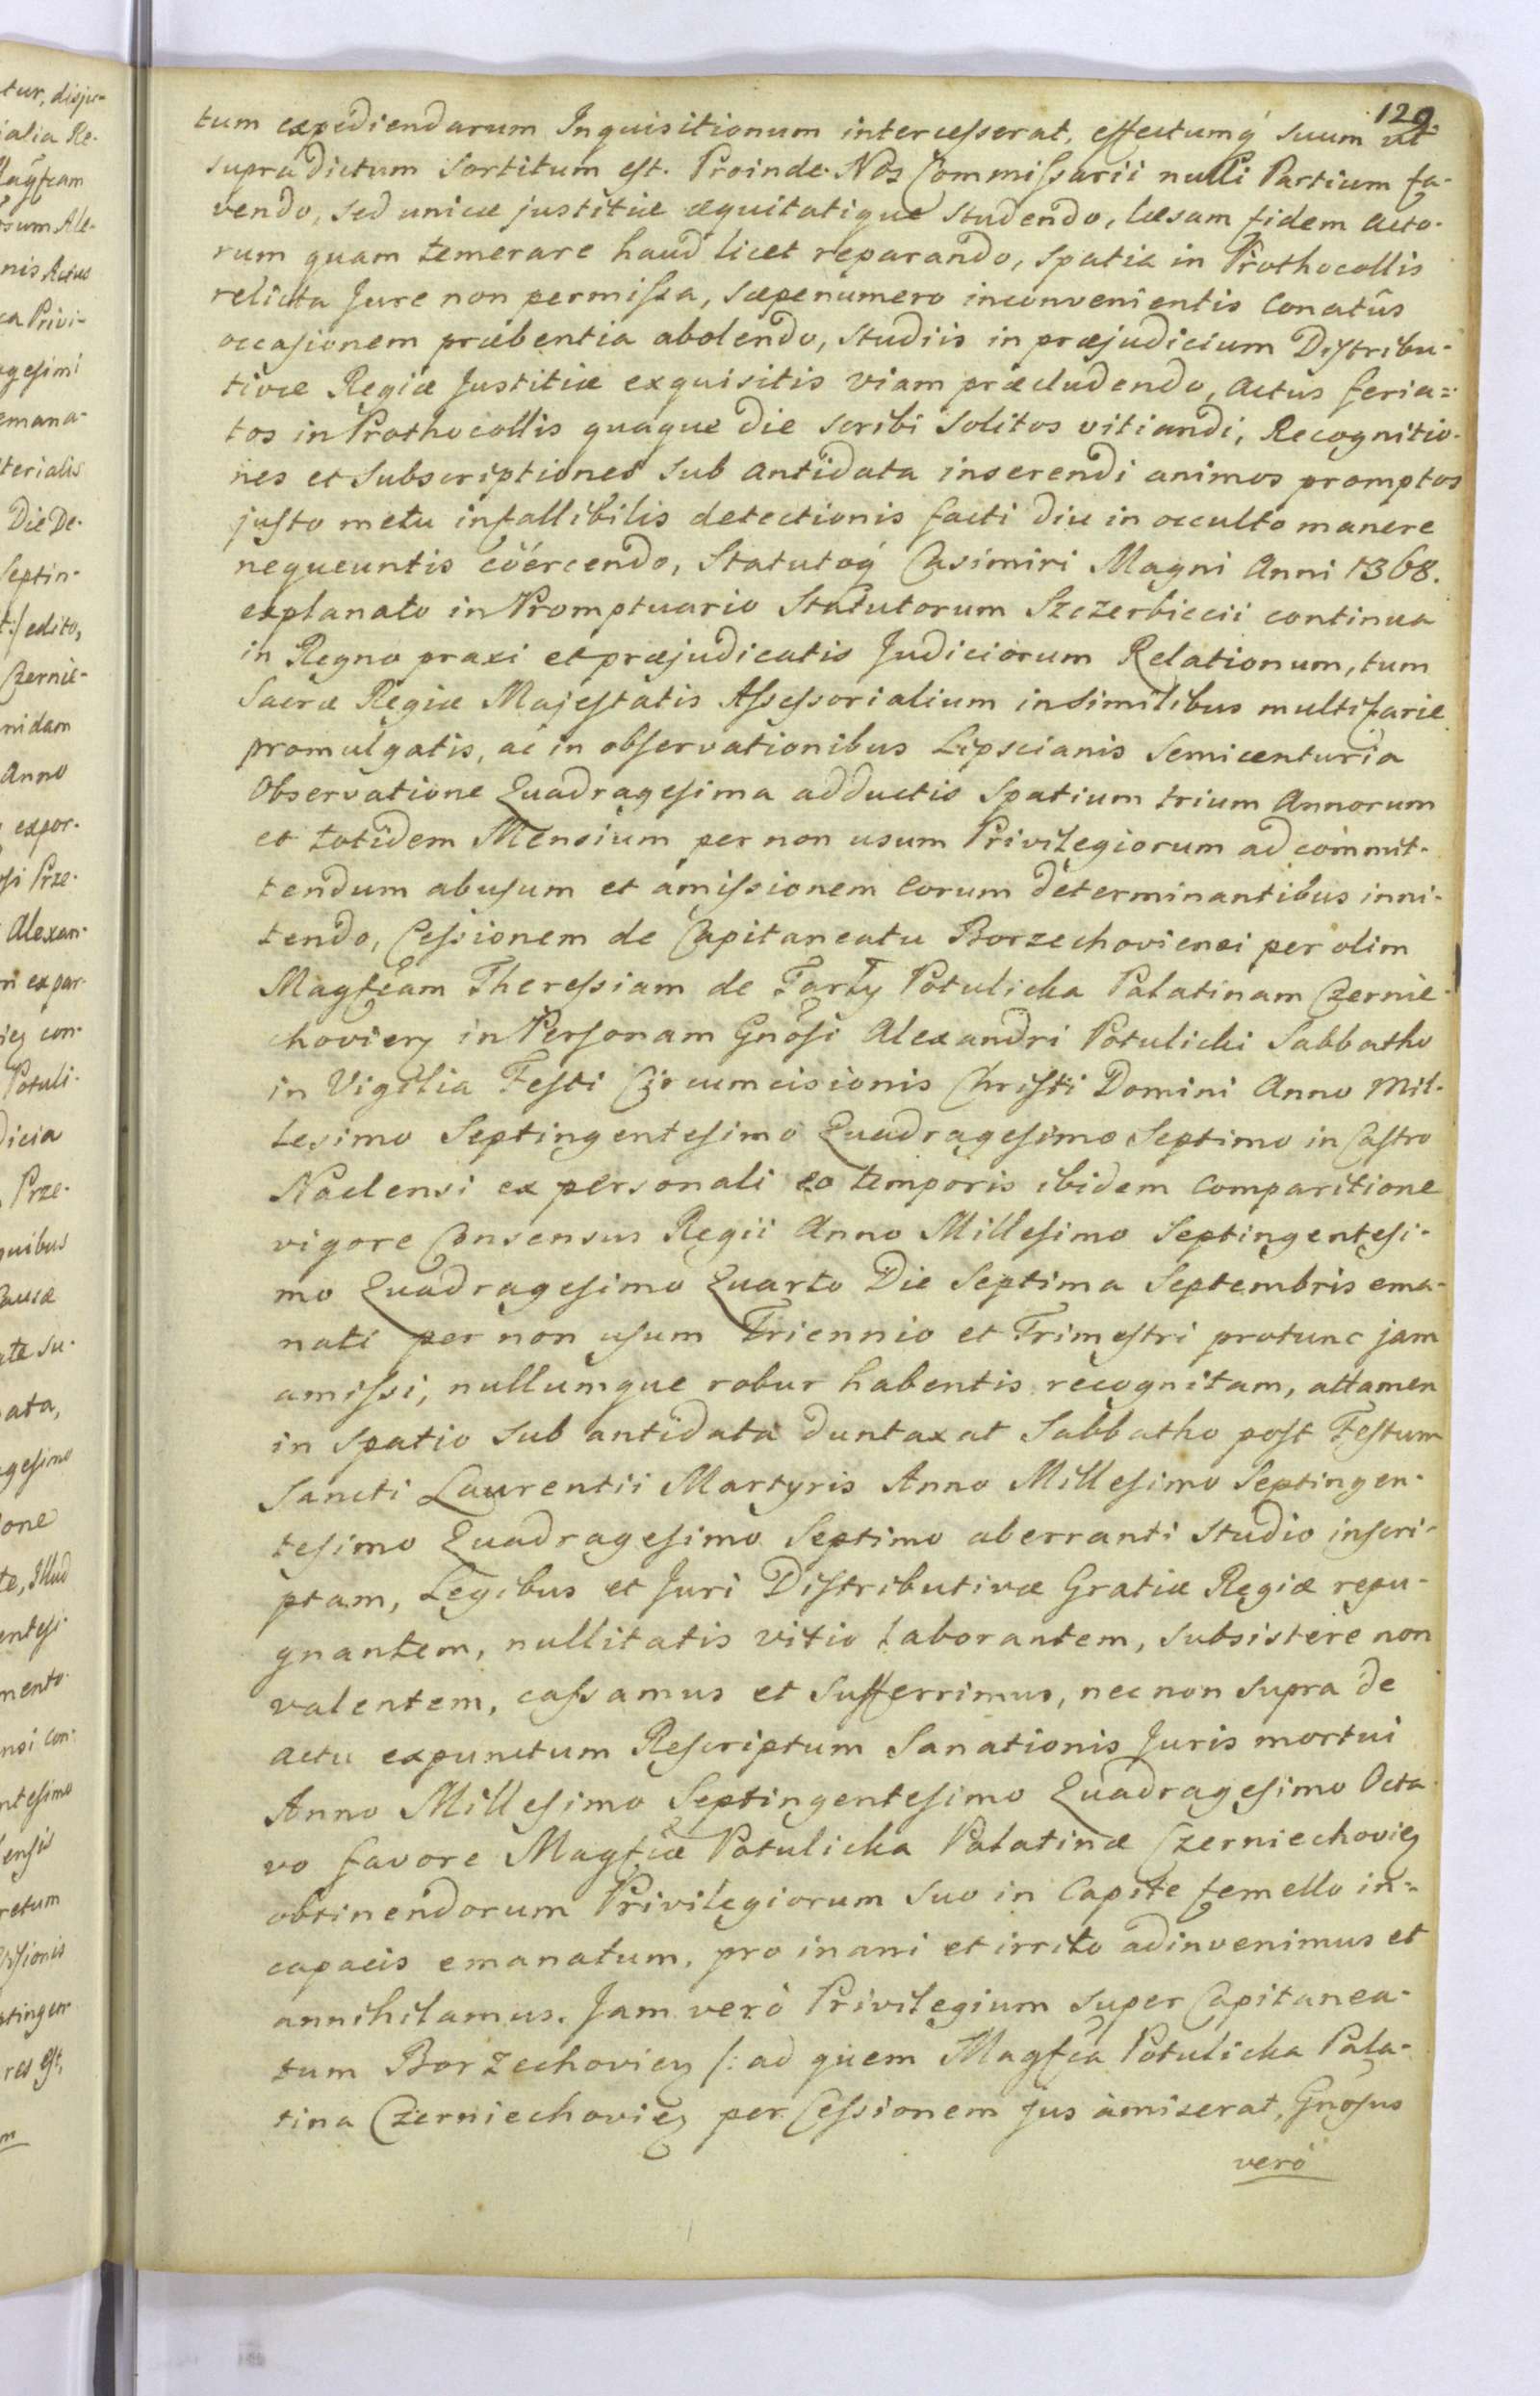 129
tum expediendarum Inquisitionum intercesserat, effectumq́ suum ut
supradictum sortitum est. Proinde Nos Commissarii nulli Partium fa-
vendo, sed unicæ justitiæ æquitatique studendo, læsam fidem acto-
rum quam temerare haud licet reparando, spatia in Prothocollis
relicta Jure non permissa, sæpenumero inconvenientis conatûs
occasionem præbentia abolendo, studiis in præjudicium Distribu-
tivæ Regiæ Justitiæ exquisitis viam præcludendo, actus feria=
tos in Prothocollis quaque die scribi solitos vitiandi, Recognitio-
nes et subscriptiones sub antidata inserendi animos promptos
justo metu infallibilis detectionis facti diu in occulto manere
nequeuntis coërcendo, Statutoq́ Casimiri Magni Anni 1368.
explanato in Promptuario Statutorum Szczerbiccii continua
in Regno praxi et præjudicatis Judiciorum Relationum, tum
Sacræ Regiæ Majestatis Assessorialium in similibus multifarie
promulgatis, ac in observationibus Lipscianis Semicenturia
Observatione Quadragesima adductis spatium trium Annorum
et totidem Mensium per non usum Privilegiorum ad commit-
tendum abusum et amissionem eorum determinantibus inni-
tendo, Cessionem de Capitaneatu Borzechoviensi per olim
Magfcam Theressiam de Tarły Potulicka Palatinam Czernie-
chovien in Personam Gnosi Alexandri Potulicki Sabbatho
in Vigilia Festi Circumcisionis Christi Domini Anno Mil-
lesimo Septingentesimo Quadragesimo Septimo in Castro
Naclensi ex personali eo temporis ibidem comparitione
vigore Consensus Regii Anno Millesimo Septingentesi-
mo Quadragesimo Quarto Die Septima Septembris ema-
nati per non usum Triennio et Trimestri protunc jam
amissi, nullumque robur habentis recognitam, attamen
in spatio sub antidata duntaxat Sabbatho post Festum
Sancti Laurentii Martyris Anno Millesimo Septingen-
tesimo Quadragesimo Septimo aberranti studio inscri-
ptam, Legibus et Juri Distributivæ Gratiæ Regiæ repu-
gnantem, nullitatis vitio laborantem, subsistere non
valentem, cassamus et sufferrimus, nec non supra de
actu expunctum Rescriptum Sanationis Juris mortui
Anno Millesimo Septingentesimo Quadragesimo Octa-
vo favore Magfcæ Potulicka Palatinæ Czerniechovien
obtinendorum Privilegiorum suo in Capite femello in=
capacis emanatum, pro inani et irrito adinvenimus et
annihilamus. Jam verò Privilegium super Capitanea-
tum Borzechovien /: ad quem Magfca Potulicka Pala-
tina Czerniechovien per Cessionem jus amiserat, Gnosus
verò